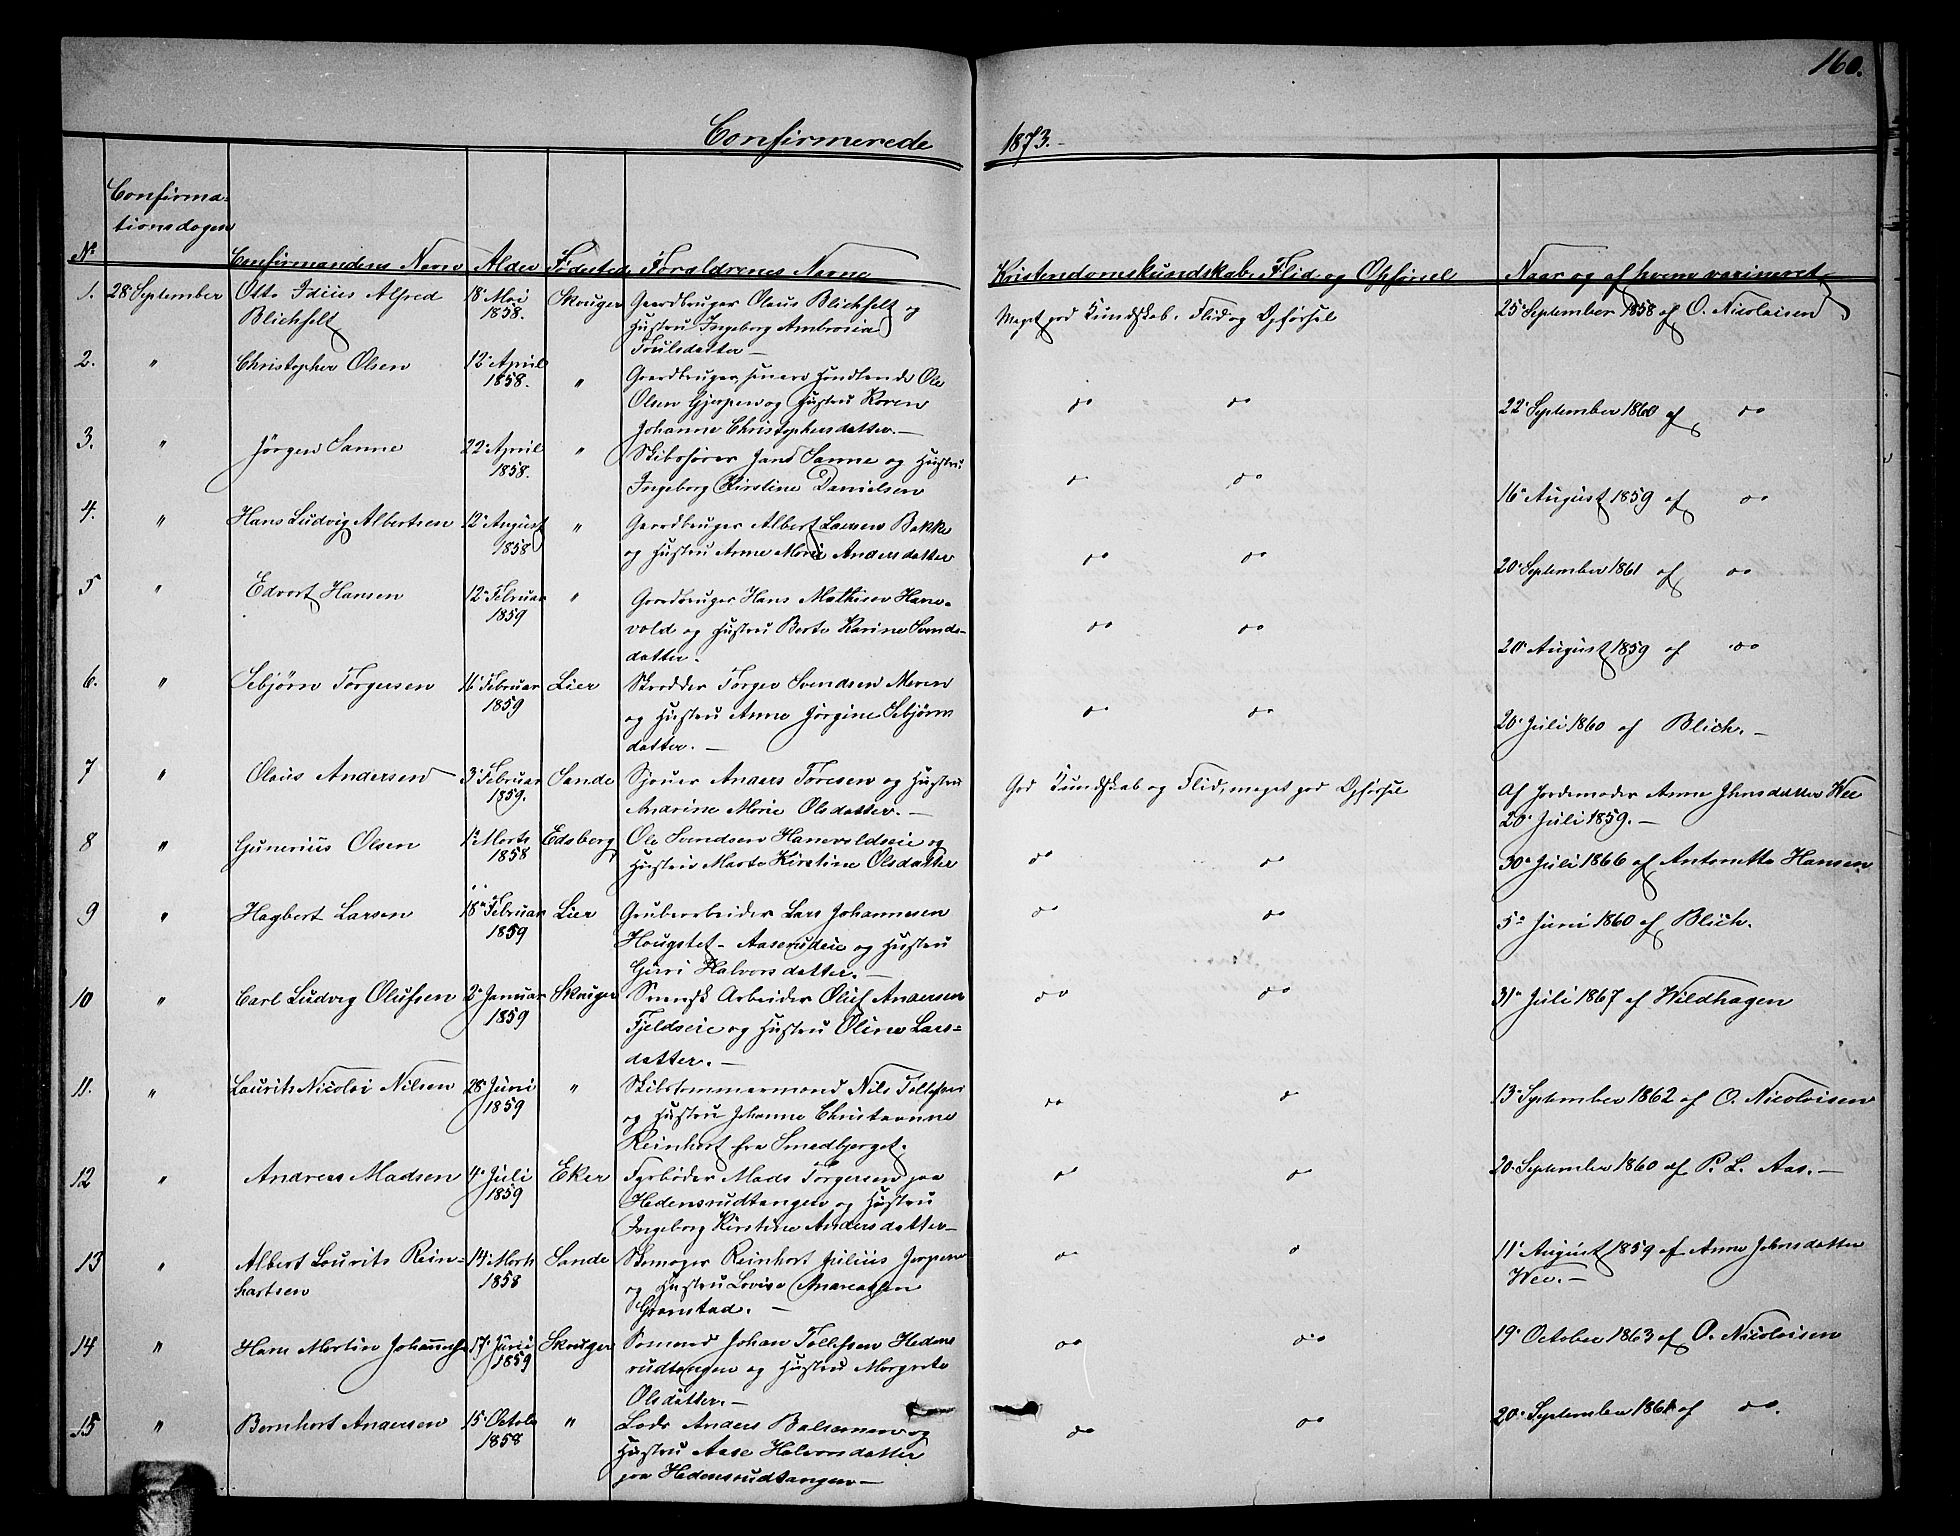 160.
Confirmerede 1873.
No Confirmationsdagen Confirmandens Navn Alder Födested Forældrenes Navne Kristendomskundskab, Flid og Opförsel Naar og af hvem vaccineret
1. 28 September Otto Idius Alfred 18 Mai Skouger Gaardbruger Olaus Blichfelt og Meget god Kundskab, Flid og Opförsel 25 September 1858 af O. Nicolaisen
Blichfelt 1858. Hustru Ingeborg Ambrosia
2. " Christopher Olsen 12 April " Gaardbruger, senere Handlende Ole do do 22 September 1860 af do
1858. Olsen Gjerpen og Hustru Karen
Johanne Christophersdatter.—
3. " Jörgen Sanne 22 April " Skibsförer Sanne og Hustru do do 16 August 1859 af do
1858. Ingeborg Kirstine Danielsen
4. " Hans Ludvig Albertsen 12 August " Gaardbruger Albert Larsen Bakke do do 20 September 1861 af do
1858 og Hustru Anne Marie Andersdatter
5 " Edvart Hansen 12 Februar " Gaardbruger Hans Mathisen Hane- do do 20 August 1859 af do
1859 vold og Hustru Berte Karine Svends-
datter.
6. " Sebjörn Törgersen 16 Februar Lier Skrædder Törger Svendsen Meren do do 20 Juli 1860 af Blich.—
1859 og Hustru Anne Jörgine Sebjörns
datter.—
7 " Olaus Andersen 3 Februar Sande Sjouer Anders Töresen og Hustru God Kundskab og Flid, meget god Opförsel Af Jordemoder Anne Jhnsdatter Wee
1859. Andrine Marie Olsdatter.— 20 Juli 1859.—
8 " Gunerius Olsen 1 Marts Edsberg Ole Svendsen Hanevoldseie og do do 30 Juli 1866 af Antonette Hansen
1858 Hustru Marte Kirstine Olsdatter
9 " Hagbert Larsen 18 Februar Lier Grubearbeider Lars Johannesen do do 5 Juni 1860 af Blich.
1859 Hougstet- Aaserudeie og Hustru
Guri Halvorsdatter.—
10 " Carl Ludvig Olufsen 2 Januar Skouger Svensk Arbeider Oluf Andersen do do 31 Juli 1867 af Wildhagen
1859 Fjeldseie og Hustru Oline Lars-
datter.—
11. " Laurits Nicolai Nilsen 28 Juni " Skibstømmermand Nils Tollefsen do do 13 September 1862 af O. Nicolaisen
1859 og Hustru Johanne Christianne
Reinhart fra Smedbjerget.
12 " Andreas Madsen 4 Juli Eker Fyrböder Mads Törgersen paa do do 20 September 1860 af P. L. Aas.—
1859 Hedensrudtangen og Hustru
Ingeborg Kirstine Andersdatter—
13 " Albert Lourits Rein- 14 Marts Sande Skomager Reinhart Julius Jespersen do do 11 August 1859 af Anne Johnsdatter
hartsen 1858 og Hustru Lovise Andreassen Wee.—
Granstad.—
14 " Hans Martin Johannesen 17 Juni Skouger Sømand Johan Tollefsen Hedens do do 19 October 1863 af O. Nicolaisen
1859 rudtangen og Hustru Margrete
Olsdatter.—
15 " Bernhart Andersen 15 Octob. " Lods Anders Balsemen og do do 20 September 1861 af do.
1858 Hustru Aase Halvorsdatter
paa Hedensrudtangen—